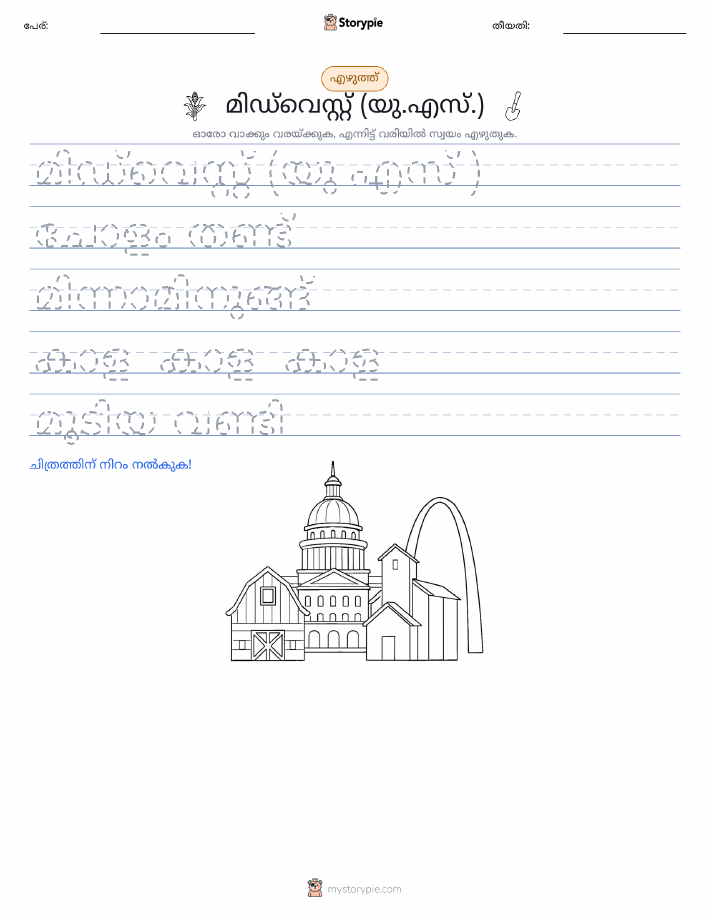 പേര്:
Storypie
തീയതി:
എഴുത്ത്
മിഡ്‌വെസ്റ്റ് (യു.എസ്.)
ഓരോ വാക്കും വരയ്ക്കുക, എന്നിട്ട് വരിയിൽ സ്വയം എഴുതുക.
മിഡ്‌വെസ്റ്റ് (യു എസ് )
ചോളം തണ്ട്
മിന്നാമിനുങ്ങ്
കാള കാള കാള
മൂടിയ വണ്ടി
ചിത്രത്തിന് നിറം നൽകുക!
mystorypie.com